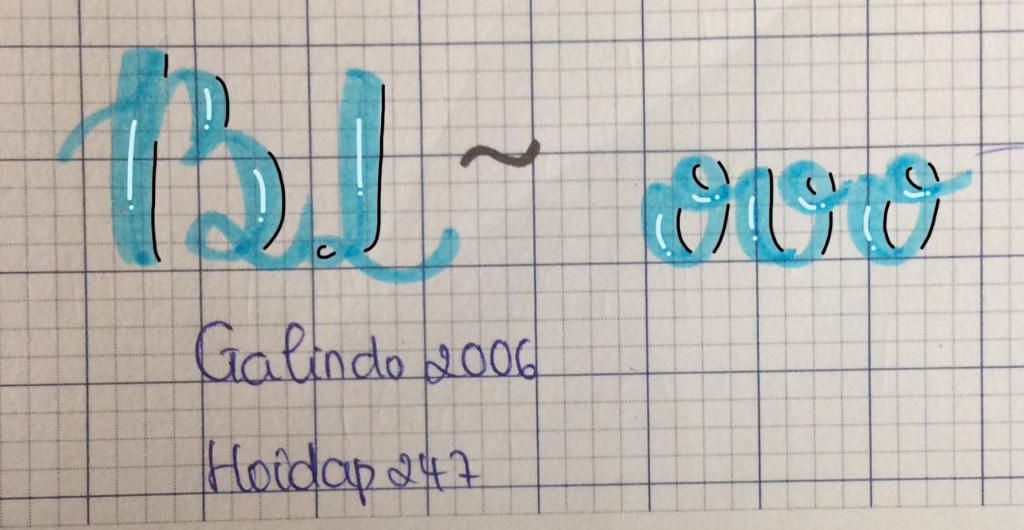 Bl ~ ovo
Galindo 2006
Hoidap 247